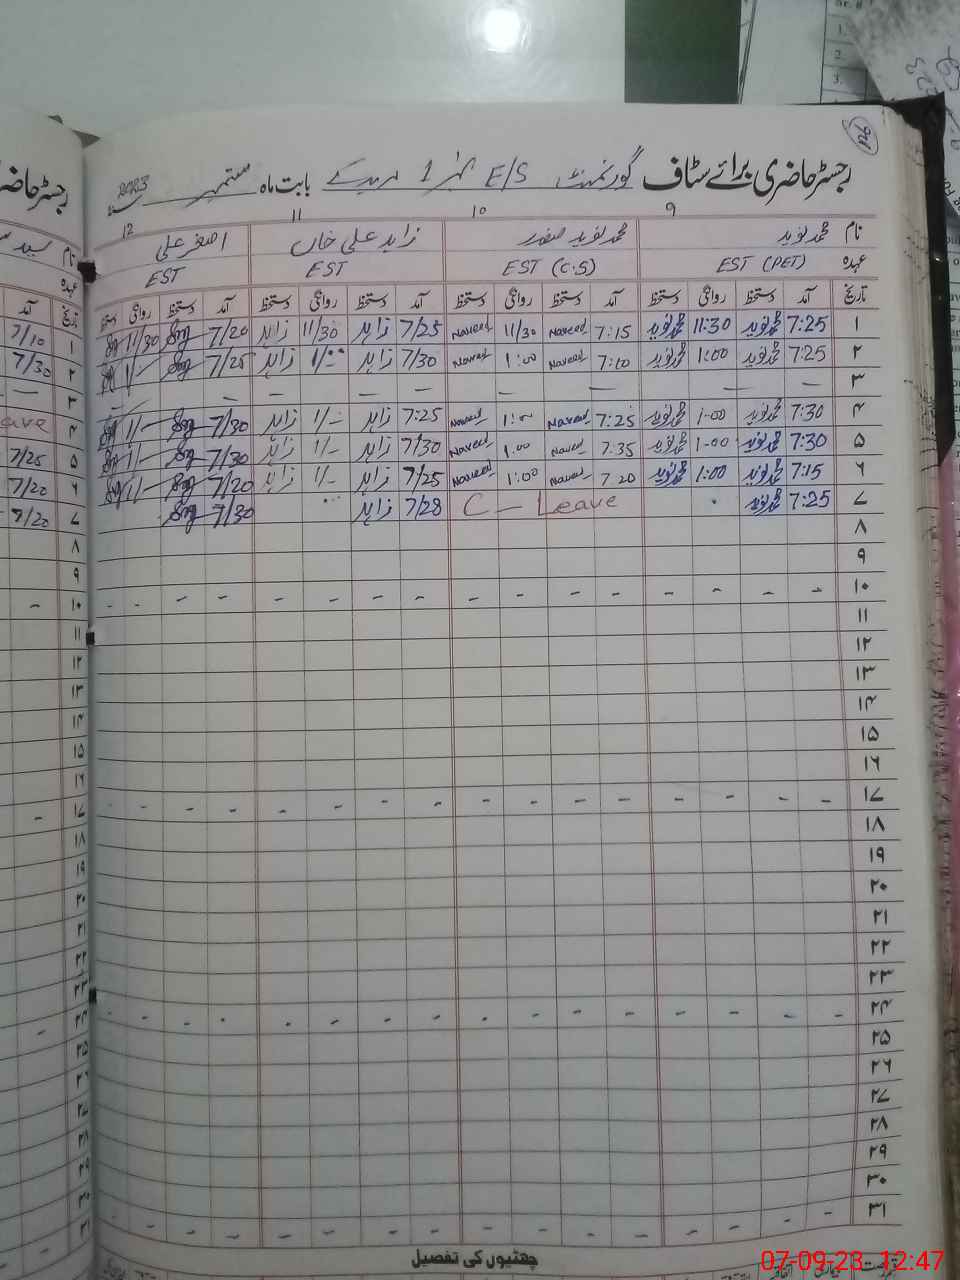 رجسٹر حاضری برائے سٹاف گورنمنٹ E/S نمبر 1 مریدکے بابت ماہ ستمبر 2023
۹ ۱۰ ۱۱ ۱۲
نام محمد نوید محمد نوید صفدر زاہد علی خاں اصغر علی
عہدہ EST (PET) EST (C.S) EST EST
تاریخ آمد دستخط روانگی دستخط آمد دستخط روانگی دستخط آمد دستخط روانگی دستخط آمد دستخط روانگی دستخط
۱ 7:25 محمد نوید 11:30 محمد نوید 7:15 Naveed 11/30 Naveed 7/25 زاہد 11/30 زاہد 7/20 11/30
۲ 7:25 محمد نوید 1:00 محمد نوید 7:10 Naveed 1:00 Naveed 7/30 زاہد 1/00 زاہد 7/25 1/-
۳ — — — — — — —
۴ 7:30 محمد نوید 1:00 محمد نوید 7:25 Naveed 1:00 Naveed 7:25 زاہد 1/- زاہد 7/30 1/-
۵ 7:30 محمد نوید 1:00 محمد نوید 7:35 Naveed 1:00 Naveed 7/30 زاہد 1/- زاہد 7/30 1/-
۶ 7:15 محمد نوید 1:00 محمد نوید 7.20 Naveed 1:00 Naveed 7/25 زاہد 1/- زاہد 7/20 1/-
۷ 7:25 محمد نوید C - Leave 7/28 زاہد 7/30
۸
۹
۱۰ - - - - - - - - - - - - - - - -
۱۱
۱۲
۱۳
۱۴
۱۵
۱۶
۱۷ - - - - - - - - - - - - - - - -
۱۸
۱۹
۲۰
۲۱
۲۲
۲۳
۲۴ - - - - - - - - - - - - - - - -
۲۵
۲۶
۲۷
۲۸
۲۹
۳۰
۳۱ - - - - - - - - - - - - - - - -
چھٹیوں کی تفصیل
رجسٹر حاضر
نام سید
عہدہ
تاریخ آمد
۱ 7/10
۲ 7/30
۳ —
۴ eave
۵ 7/25
۶ 7/20
۷ 7/20
۸
۹
۱۰ -
۱۱
۱۲
۱۳
۱۴
۱۵
۱۶
۱۷ -
۱۸
۱۹
۲۰
۲۱
۲۲
۲۳
۲۴ -
۲۵
۲۶
۲۷
۲۸
۲۹
۳۰
۳۱ -
07-09-23 12:47